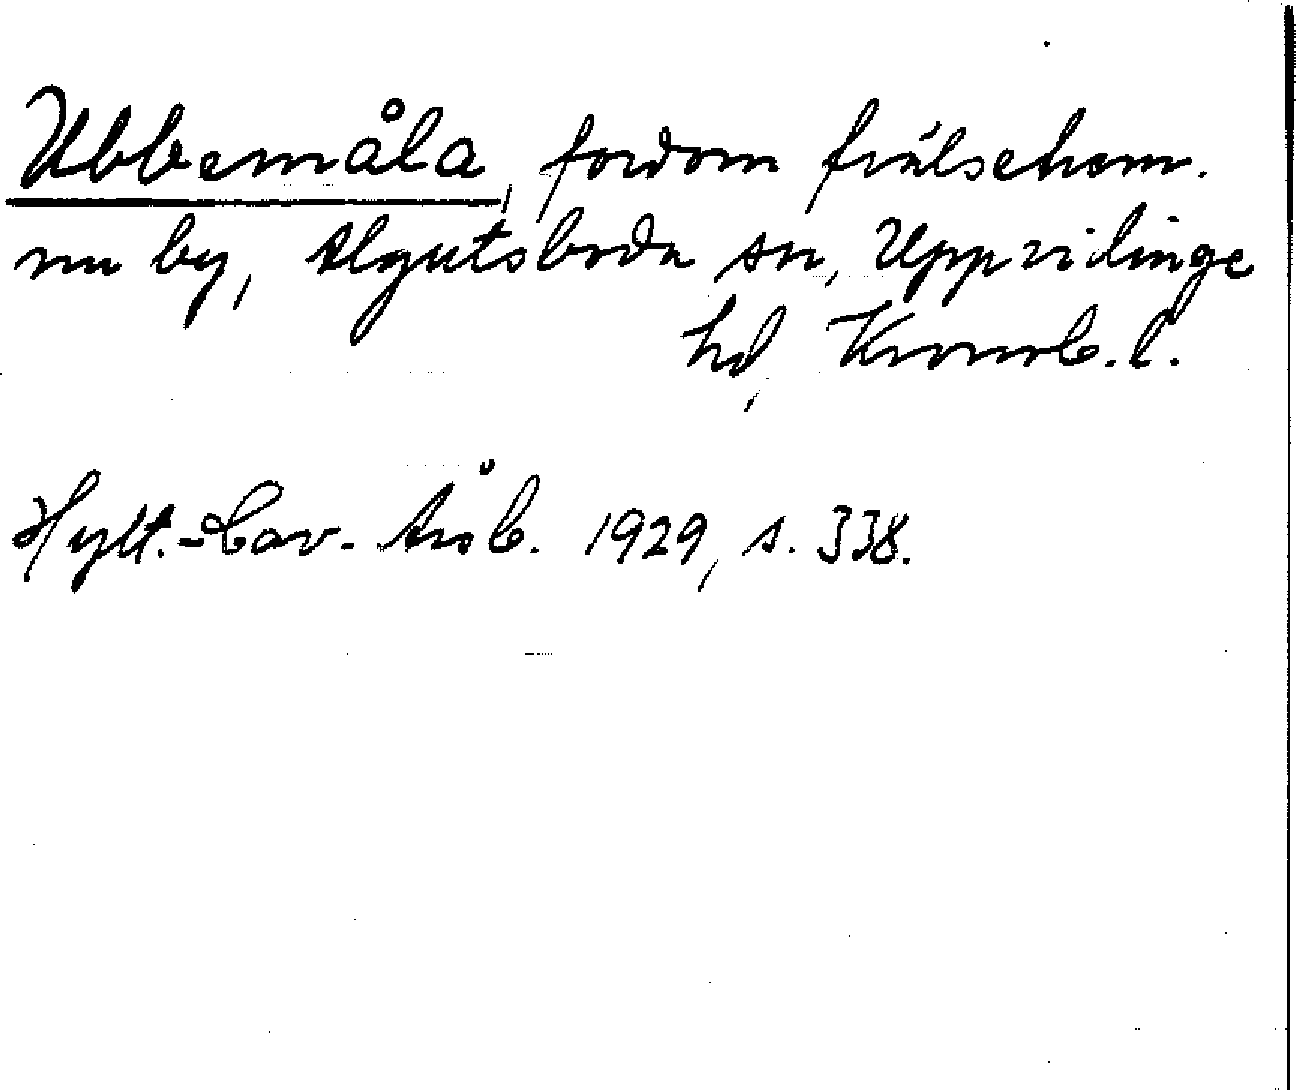 Ubbemåla, fordom frälsehem.
nu by, Algutsboda sn, Uppvidinge
hd, Kronob. l.
Hylt.-Cav. Årsb. 1929, s. 338.